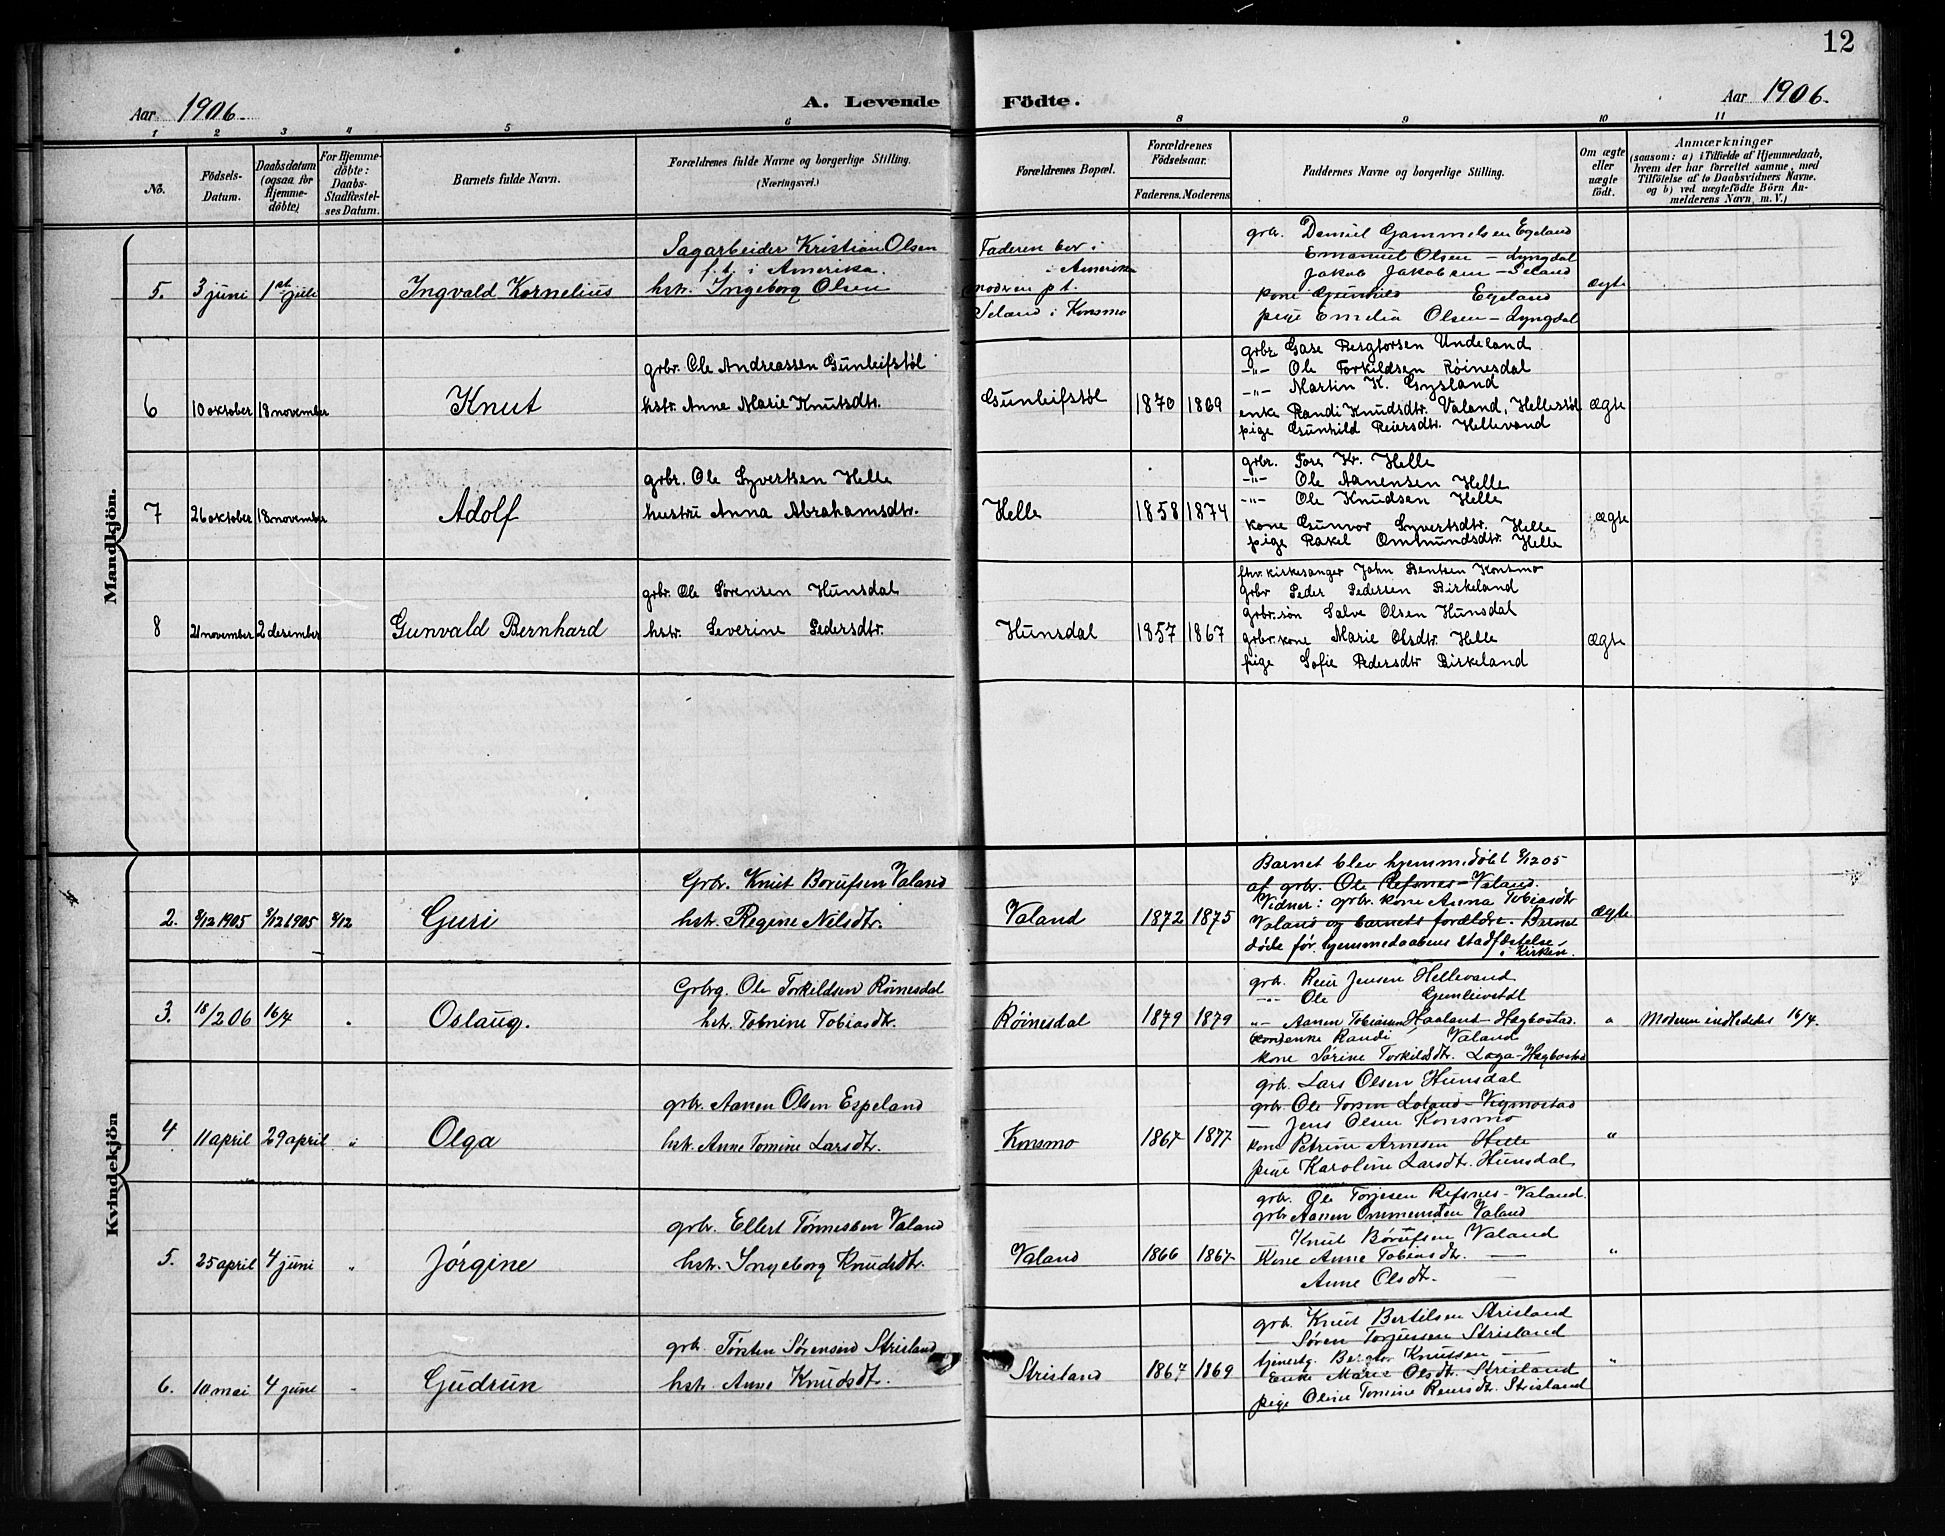 12
Aar 1906.
A. Levende Födte.
Aar 1906.
1 2 3 4 5 6 8 9 10 11
No.
Födsels-Datum.
Daabsdatum (ogsaa for Hjemme-döbte)
For Hjemme-döbte: Daabs-Stadfæstel-ses Datum.
Barnets fulde Navn.
Forældrenes fulde Navne og borgerlige Stilling. (Næringsvei.)
Forældrenes Bopæl.
Forældrenes Födselsaar.
Faderens. Moderens
Faddernes Navne og borgerlige Stilling.
Om ægte eller uægte födt.
Anmærkninger
(saasom: a) i Tilfælde af Hjemmedaab,
hvem der har forrettet samme, med
Tilföielse af to Daabsvidners Navne.
og b) ved uægtefödte Börn An-
melderens Navn, m. V.)
Mandkjön.
5. 3 juni 1st juli
Ingvald Kornelius
Sagarbeider Kristian Olsen
f. t. i Amerika.
hstr. Ingeborg Olsen
Faderen bor i
i Amerika
moderen p t.
Seland i Konsmo
grbr. Daniel Gammelsen Egeland
Emanuel Olsen - Lyngdal
Jakob Jakobsen - Seland
kone Gunhild Egeland
pige Emelia Olsen - Lyngdal
ægte
6 10 oktober 18 november
Knut
grbr. Ole Andreassen Gunleifstøl
hstr. Anne Marie Knutsdtr.
Gunleifstøl
1870 1869
grbr. Gase Bergtorsen Undeland
-"- Ole Torkildsen Röinesdal
-"- Martin K. Gysland
enke Randi Knudsdtr. Valand, Hellestøl
pige Gunhild Reiersdtr. Hellevand
ægte
7 26 oktober 18 november
Adolf
grbr. Ole Syvertsen Helle
hustru Anna Abrahamsdtr.
Helle
1858 1874
grbr. Tore Kr. Helle
-"- Ole Aanensen Helle
-"- Ole Knudsen Helle
kone Gunvor Syvertsdtr. Helle
pige Rakel Omundsdtr. Helle
ægte
8 21 november 2 desember
Gunvald Bernhard
grbr. Ole Sørensen Hunsdal
hstr. Severine Pedersdtr.
Hunsdal
1857 1867
fhv. kirkesanger John Bentsen Konsmo
grbr Peder Pedersen Birkeland
grbr.søn Salve Olsen Hunsdal
grbr.kone Marie Olsdtr. Helle
pige Sofie Pedersdtr Birkeland
ægte
Kvindekjön
2. 9/12 1905 9/12 1905 9/12
Guri
Grbr. Knut Borufsen Valand
hstr. Regine Nilsdtr.
Valand
1872 1875
Barnet blev hjemmedøbt 9/12 05
af grbr. Ole Refsnes - Valand.
Vidner: grbr. kone Anna Tobiasdtr
Valand og barnets forældre. Barnet
døde før hjemmedaabens stadfæstelse
i Kirken.
ægte
3. 18/2 06 16/4 "
Oslaug.
Grbrg. Ole Torkeldsen Röinesdal
hstr. Tobine Tobiasdtr.
Röinesdal
1879 1879
grb. Reier Jensen Hellevand
-"- Ole Gunleivstøl
"- Aanen Tobiassen Haaland - Hægbostad.
enke Randi Valand
kone Sørine Torkildsdtr. Loga - Hægbostad
"
Moderen indledet 16/4.
4. 11 april 29 april "
Olga
grbr. Aanen Olsen Espeland
hstr. Anne Tomine Larsdtr.
Konsmo
1867 1877
grbr. Lars Olsen Hunsdal
grbr. Ole Torsen Loland - Vigmostad
— Jens Olsen Konsmo
kone Petrine Arnesen Helle
pige Karoline Larsdtr. Hunsdal
"
5. 25 april 4 juni "
Jörgine
grbr. Ellert Tønnessen Valand
hstr. Ingeborg Knudsdtr.
Valand
1866 1867
grbr. Ole Torjesen Refsnes - Valand.
grbr Aanen Ommundsen Valand
— Knut Børufsen Valand
Kone Anne Tobiasdtr. —
Anne Olsdtr. —
"
6. 10 mai 4 juni "
Gudrun
grbr. Tørsten Sørensen Strisland
hstr. Anne Knudsdtr.
Strisland
1867 1869
grb. Knut Bertilsen Strisland
— Søren Torjussen Strisland
tjenestg. Bergtor Knutsen —
Enke Maren Olsdtr. Strisland
pige Oline Tomine Reiersdtr. Strisland
"